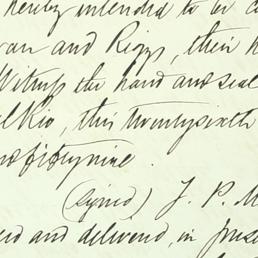 hereby intended to be c
and Riggs, their h
Witness the hand and seal
this twentysixth
fiftynine.
(signed) J. P. M
and delivered, in prese